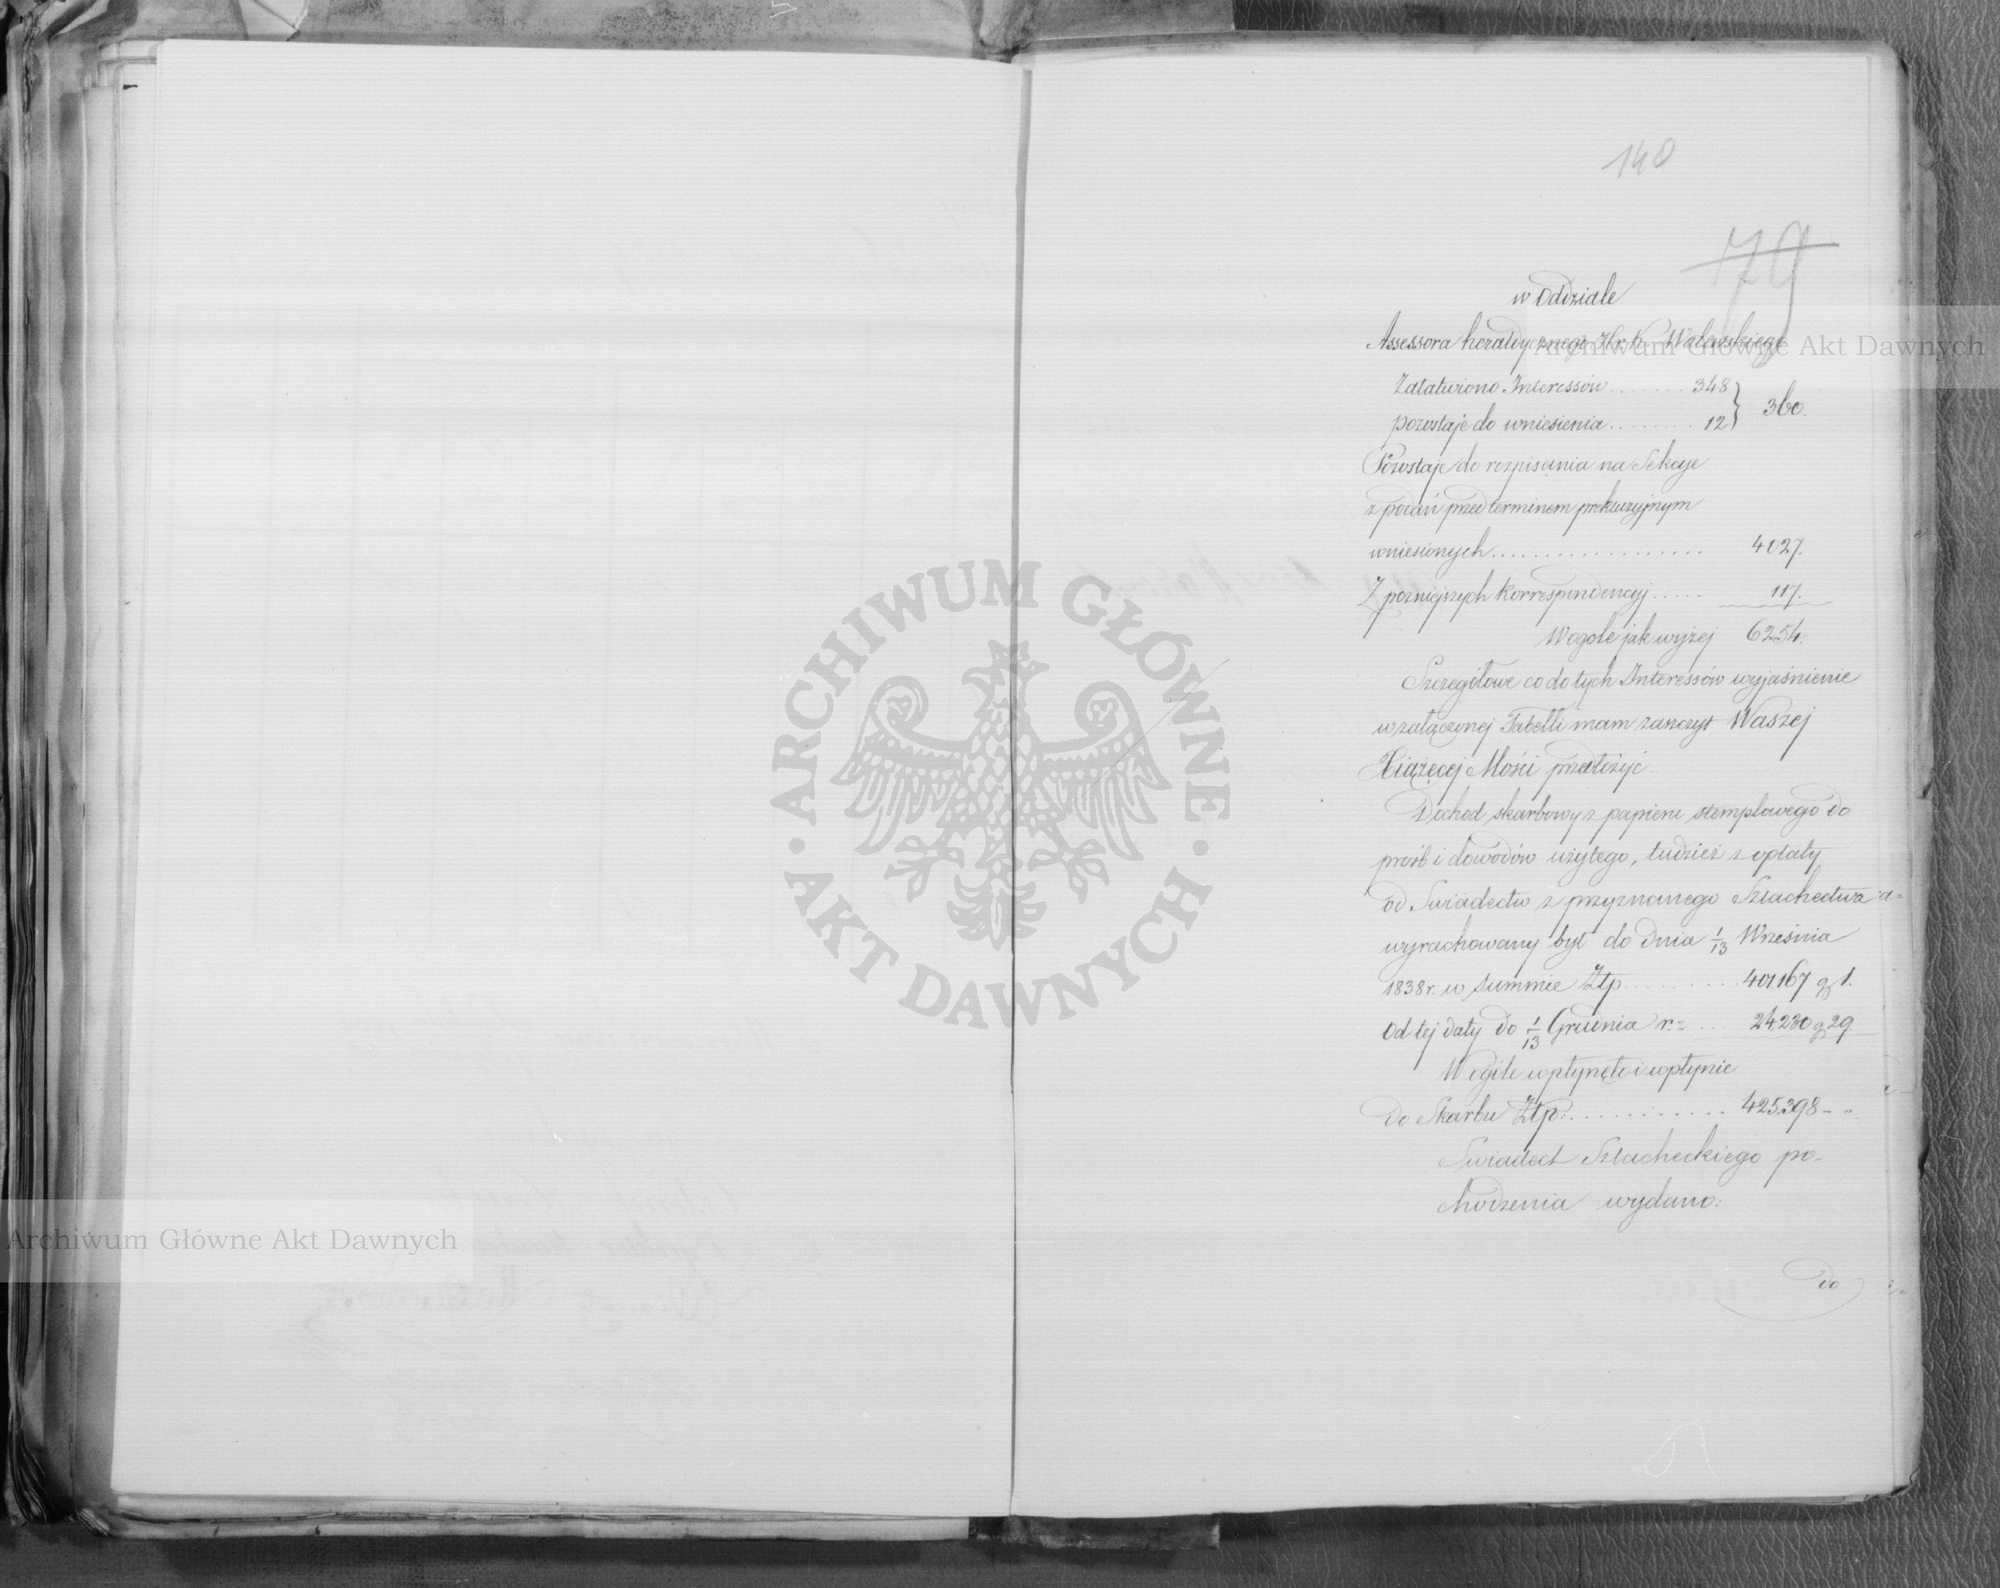 140
179
w Oddziale
Assessora heraldycznego Hr. K. Walewskiego
Załatwiono Interessów ....... 348
pozostaje do wniesienia ........ 12 } 360.
Pozostaje do rozpisania na Sekcye
z podań przed terminem prekluzyjnym
wniesionych ................... 4027.
Z pozniejszych Korrespondencyj ..... 117.
Wogole jak wyżej 6254.
Szczegółowe co do tych Interessów wyjaśnienie
w załączonej Tabelli mam zaszczyt Waszej
Xiążęcej Mości przedłożyć.
Dochod skarbowy z papieru stemplowego do
próśb i dowodów użytego, tudzież z opłaty
od Swiadectw z przyznanego Szlachectwa
wyrachowany był do dnia 1/13 Września
1838 r. w Summie Złp ......... 401.167 g 1.
Od tej daty do 1/13 Grudnia r. = ... 24.230 g 29
W ogóle wpłynęło i wpłynie
do Skarbu Złp: ............ 425.398 - "
Swiadect Szlacheckiego po-
chodzenia wydano:
do
Archiwum Główne Akt Dawnych
Archiwum Główne Akt Dawnych
· ARCHIWUM GŁÓWNE ·
AKT DAWNYCH